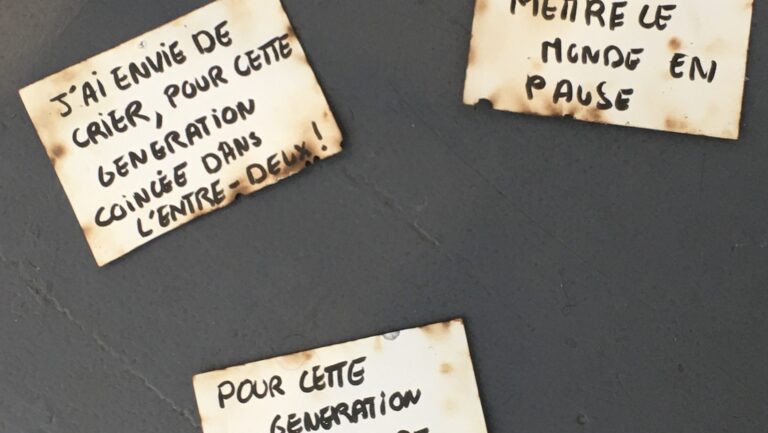 J'AI ENVIE DE
CRIER, POUR CETTE
GENERATION
COINCÉE DANS
L'ENTRE-DEUX!
METTRE LE
MONDE EN
PAUSE
POUR CETTE
GENERATION